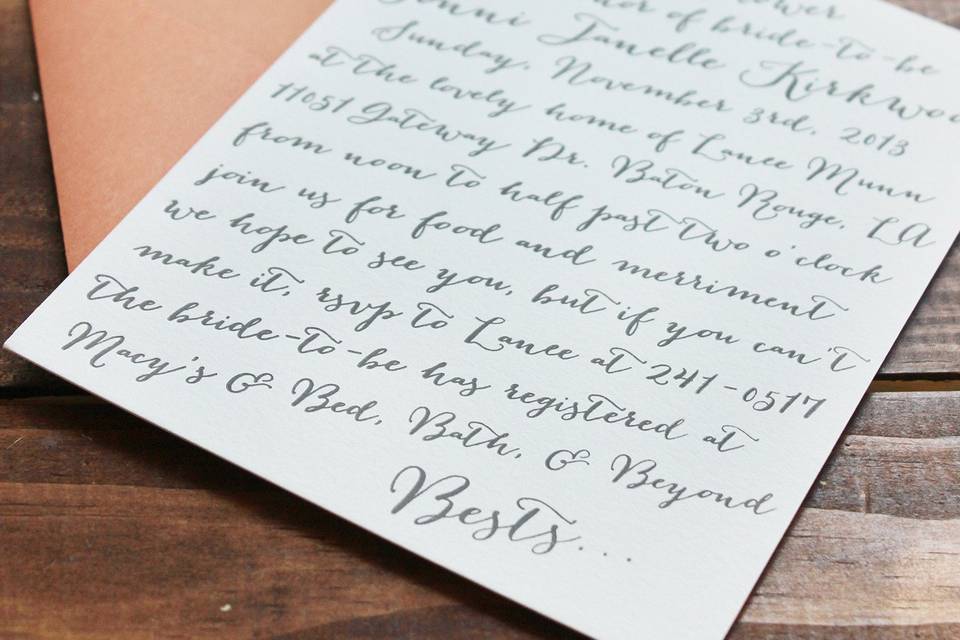 of bride-to-be
Janelle
Sunday, November 3rd, 2013
at the lovely home of Lance Munn
11051 Gateway Dr. Baton Rouge, LA
from noon to half past two o'clock
join us for food and merriment
we hope to see you, but if you can't
make it, rsvp to Lance at 241-0517
the bride-to-be has registered at
Macy's & Bed, Bath, & Beyond
Bests...